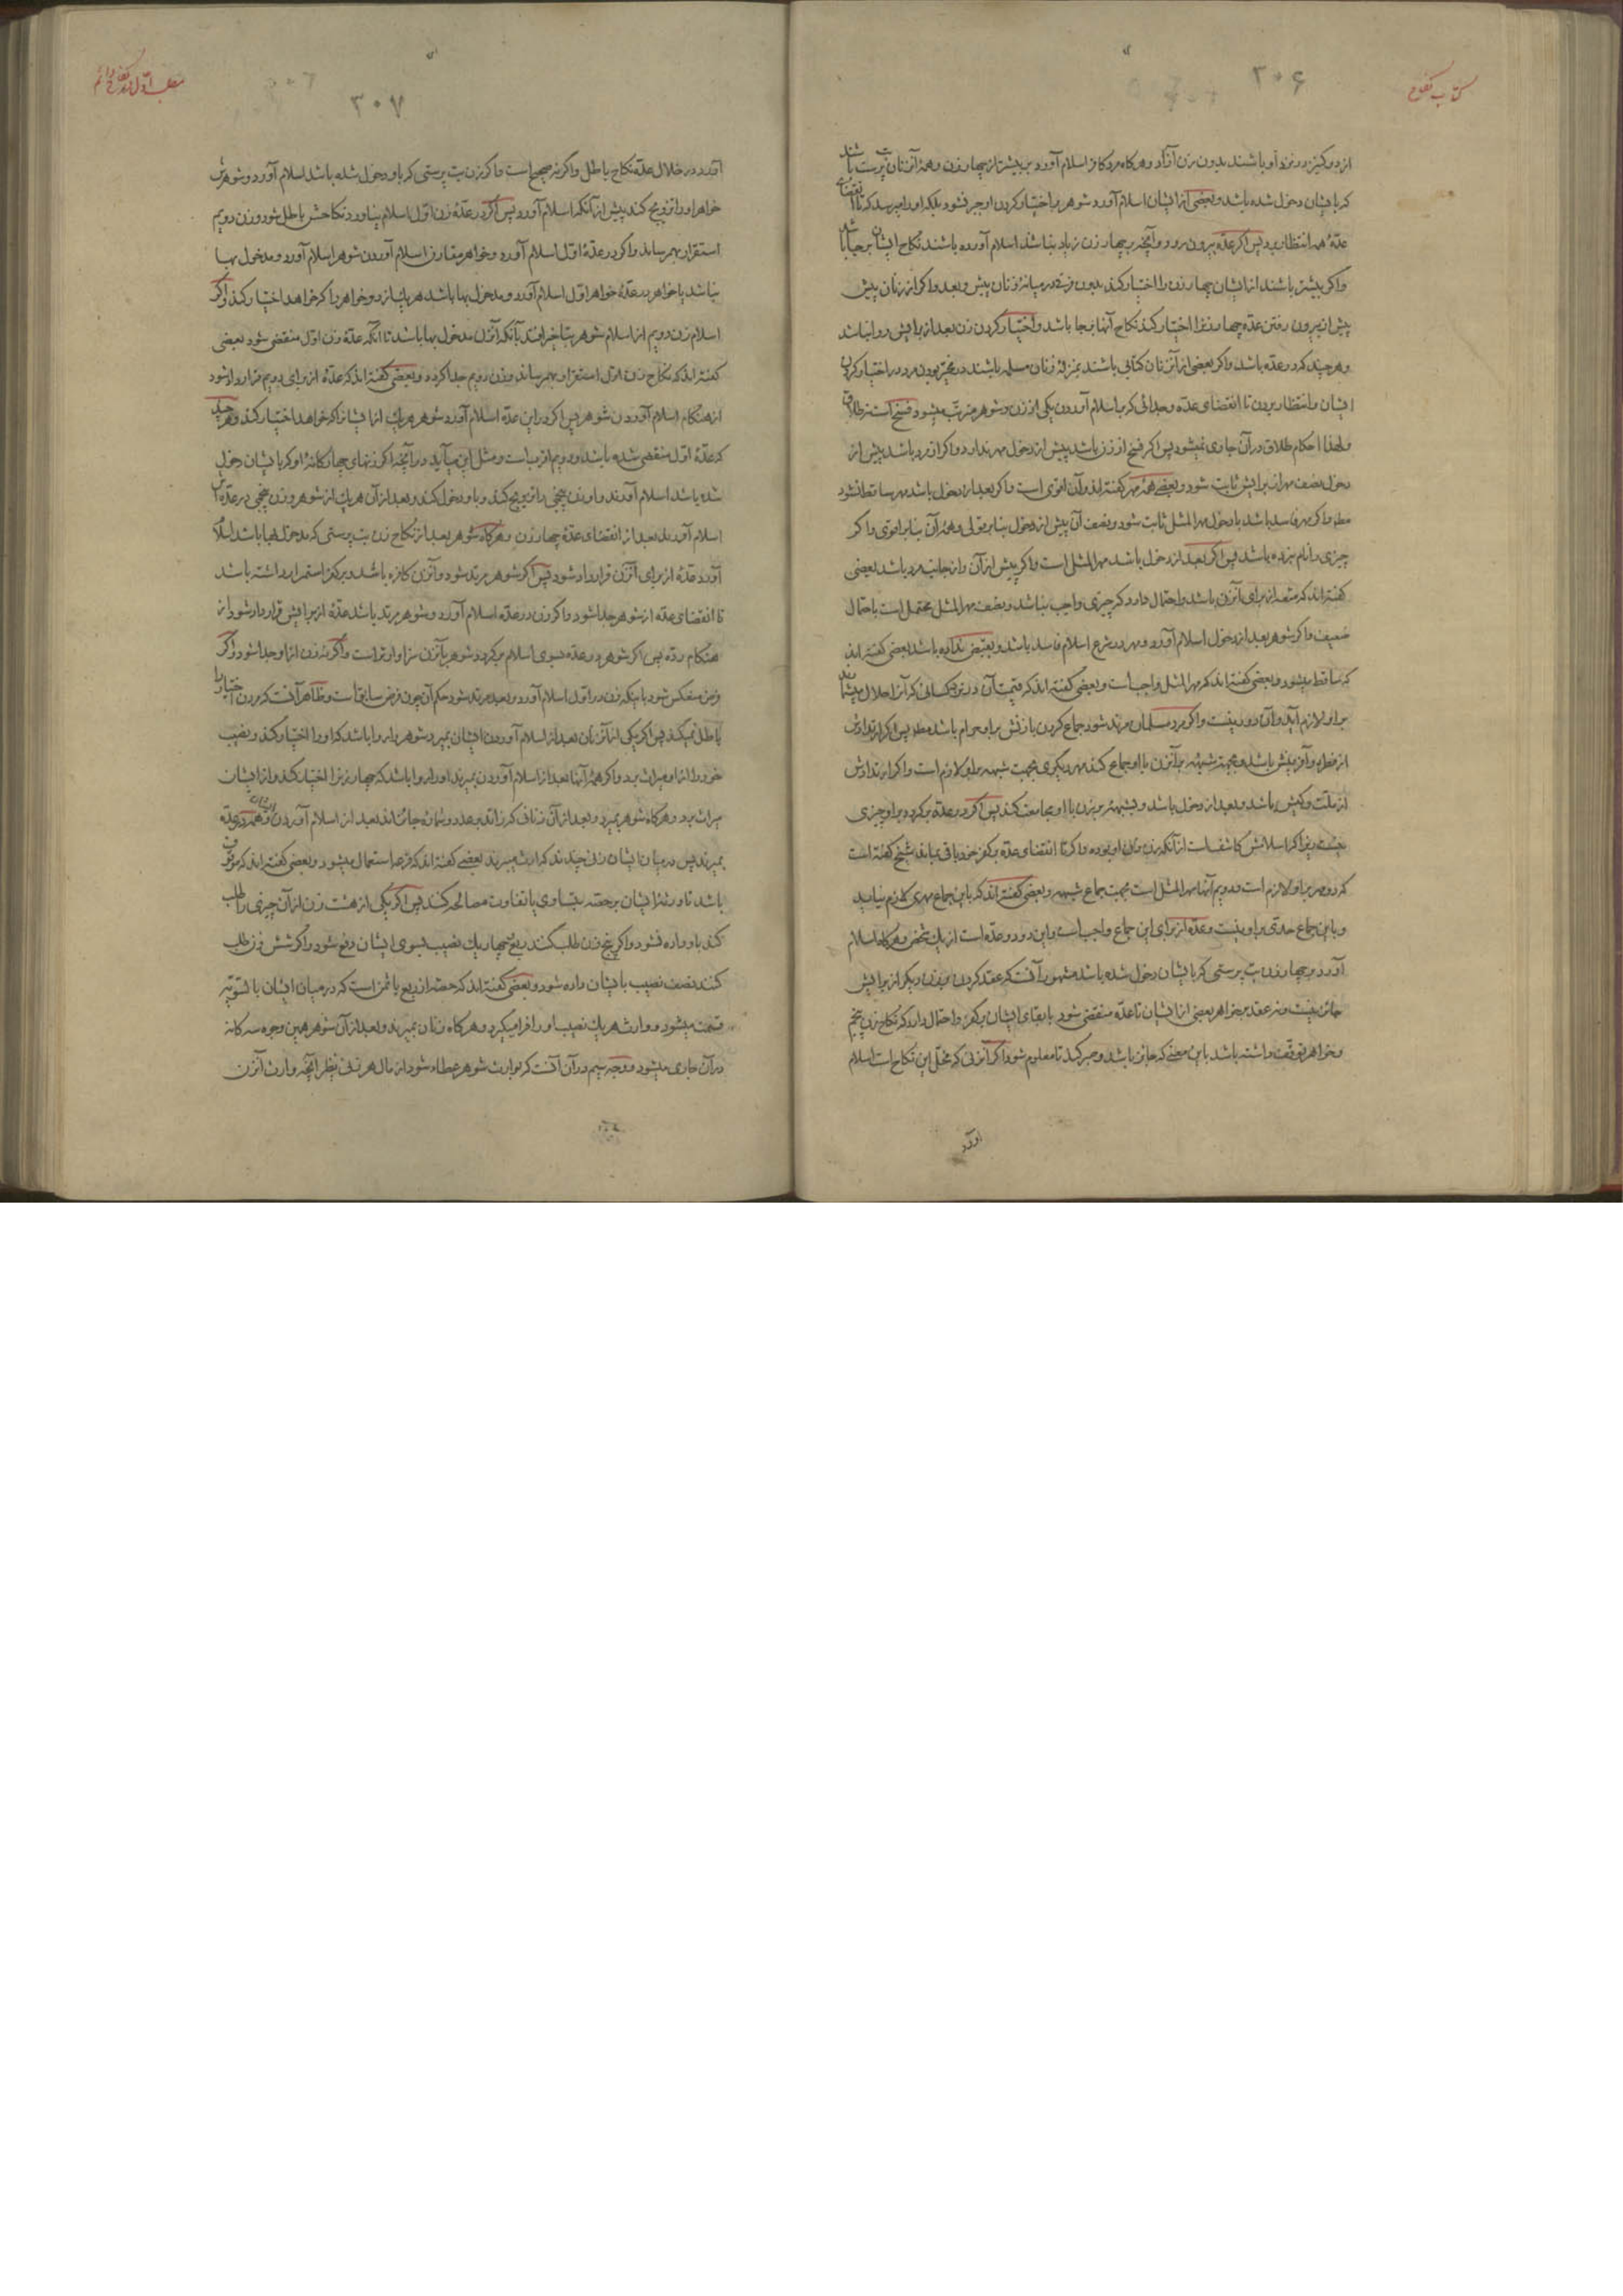 کتاب نکاح
۳۰۶
از دو کنیز در نزد او باشند بدون زن آزاد و هرکاه مرد کافر اسلام آورد بر بیشتر از چهار زن و همهٔ آنزنان بت پرست باشند
که بایشان دخول شده باشد و بعضی از ایشان اسلام آورد شوهر بر اختیار کردن او جبر نشود بلکه او را میرسد که تا انقضای
عدّهٔ همه انتظار برد پس اکر عدّه بیرون رود و آنچه بر چهار زن زیاد نباشد اسلام آورده باشند نکاح ایشان بر جا باشد
و اکر بیشتر باشند از ایشان چهار زن را اختیار کند بدون فرق در میانهٔ زنان پیش و بعد و اکر از زنان پیش
پیش از بیرون رفتن عدّه چهار زنرا اختیار کند نکاح آنها بر جا باشد و اختیار کردن زن بعد از برایش روا نباشد
و هر چند که در عدّه باشد و اکر بعضی از آنزنان کتابی باشند بمنزلهٔ زنان مسلمه باشند در مخیّر بودن مرد در اختیار کردن
ایشان و انتظار بردن تا انقضای عدّه و جدائی که باسلام آوردن یکی از زن و شوهر مترتّب میشود فسخ است نه طلاق
و لهذا احکام طلاق در آن جاری نمیشود پس اکر فسخ از زن باشد پیش از دخول مهر ندارد و اکر از مرد باشد پیش از
دخول نصف مهر از برایش ثابت شود و بعضی همهٔ مهر کفته‌اند و آن اقوی است و اکر بعد از دخول باشد مهر ساقط نشود
مط و اکر مهر فاسد باشد با دخول مهر المثل ثابت شود و نصف آن پیش از دخول بنا بر قولی و همهٔ آن بنا بر اقوی و اکر
چیزی را نام نبرده باشد پس اکر بعد از دخول باشد مهر المثل است و اکر پیش از آن و از جانب مرد باشد بعضی
کفته‌اند که متعه از برای آنزن باشد و احتمال دارد که چیزی واجب نباشد و نصف مهر المثل محتمل است باحتمال
ضعیف و اکر شوهر بعد از دخول اسلام آورد و مهر در شرع اسلام فاسد باشد و بقبض نداده باشد بعضی کفته‌اند
که ساقط میشود و بعضی کفته‌اند که مهر المثل واجب است و بعضی کفته‌اند که قیمت آن در نزد کسانی که آنرا حلال میدانند
بر او لازم آید و آن دور نیست و اکر مرد مسلمان مرتد شود جماع کردن با زنش بر او حرام باشد مط پس اکر ارتدادش
از فطره و آفرینش باشد و بجهت شبههٔ بر آنزن با او جماع کند مهر دیکری بجهت شبهه بر او لازم است و اکر ارتدادش
از ملّت و کیش باشد و بعد از دخول باشد و بشبههٔ بر زن با او مجامعت کند پس اکر در عدّه برکردد بر او چیزی
نیست زیرا که اسلامش کاشف است از آنکه زن زن او بوده و اکر تا انقضای عدّه بر کفر خود باقی بماند شیخ کفته است
که دو مهر بر او لازم است و دویم آنها مهر المثل است بجهت جماع شبهه و بعضی کفته‌اند که باین جماع مهری لازم نیاید
و باین جماع حدّی بر او نیست و عدّه از برای این جماع واجب است و این دو عدّه است از یک شخص و هرکاه اسلام
آورد بر چهار زن بت پرستی که بایشان دخول شده باشد مشهور آنست که عقد کردن بر زن دیکر از برایش
جائز نیست و نه عقد بر خواهر بعضی از ایشان تا عدّه منقضی شود با بقای ایشان بر کفر و احتمال دارد که نکاح زن پنجم
و خواهر توقّف داشته باشد باین معنی که جائز باشد و صبر کند تا معلوم شود اکر آنزنی که مخلّ این نکاح است اسلام
آورد
مطلب اوّل در نکاح دائم
۳۰۷
آورد در خلال عدّه نکاح باطل و اکر نه صحیح است و اکر زن بت پرستی که باو دخول شده باشد اسلام آورد و شوهرش
خواهر او را تزویج کند پیش از آنکه اسلام آورد پس اکر در عدّهٔ زن اوّل اسلام نیاورد نکاحش باطل شود و زن دویم
استقرار بهم رساند و اکر در عدّهٔ اوّل اسلام آورد و خواهر مقارن اسلام آوردن شوهر اسلام آورد و مدخول بها
نباشد یا خواهر در عدّهٔ خواهر اوّل اسلام آورد و مدخول بها باشد هر یک از دو خواهر را که خواهد اختیار کند و اکر
اسلام زن دویم از اسلام شوهر بتأخیر افتد با آنکه آنزن مدخول بها باشد تا آنکه عدّهٔ زن اوّل منقضی شود بعضی
کفته‌اند که نکاح زن اوّل استقرار بهم رساند و زن دویم جدا کردد و بعضی کفته‌اند که عدّهٔ از برای دویم قرار داده شود
از هنکام اسلام آوردن شوهر پس اکر در این عدّه اسلام آورد شوهر هر یک از ایشانرا که خواهد اختیار کند و هر چند
که عدّهٔ اوّل منقضی شده باشد و دویم اقرب است و مثل این میآید در آنچه اکر زنهای چهارکانهٔ او که بایشان دخول
شده باشد اسلام آورند و او زن پنجمی را تزویج کند و باو دخول کند و بعد از آن هر یک از شوهر و زن پنجمی در عدّه
اسلام آورند بعد از انقضای عدّهٔ چهار زن و هرکاه شوهر بعد از نکاح زن بت پرستی که مدخول بها باشد اسلام
آورد عدّهٔ از برای آنزن قرار داده شود پس اکر شوهر مرتد شود و آنزن کافره باشد و بر کفر استمرار داشته باشد
تا انقضای عدّه از شوهر جدا شود و اکر زن در عدّه اسلام آورد و شوهر مرتد باشد عدّهٔ از برایش قرار داده شود از
هنکام ردّه پس اکر شوهر در عدّه بسوی اسلام برکردد شوهر بآنزن سزاوارتر است و اکر نه زن از او جدا شود و اکر
فرض منعکس شود باینکه زن در اوّل اسلام آورد و بعد مرتد شود حکم آن چون فرض سابق است و ظاهر آنست که مردن اختیار را
باطل نمیکند پس اکر یکی از آنزنان بعد از اسلام آوردن ایشان بمیرد شوهر را روا باشد که او را اختیار کند و نصیب
خود را از او میراث برد و اکر همهٔ آنها بعد از اسلام آوردن بمیرند او را روا باشد که چهار زنرا اختیار کند و از ایشان
میراث برد و هرکاه شوهر بمیرد و بعد از آن زنانی که زائد بر عدد و بمانه جائز‌اند بعد از اسلام آوردن ایشان و همه در عدّه
بمیرند پس در میان ایشان زنی چندند که ارث میبرند بعضی کفته‌اند که قرعه استعمال میشود و بعضی کفته‌اند که موقوف
باشد تا ورثهٔ ایشان بر حصّه بتساوی یا تفاوت مصالحه کنند پس اکر یکی از هشت زن از آن چیزی را طلب
کند باو داده نشود و اکر پنج زن طلب کنند ربع چهار یک نصیب بسوی ایشان دفع شود و اکر شش زن طلب
کنند نصف نصیب بایشان داده شود و بعضی کفته‌اند که حصّه از ربع یا ثمن است که در میان ایشان بالسّویّه
قسمت میشود و وارث هر یک نصیب او را فرا میکیرد و هرکاه زنان بمیرند و بعد از آن شوهر همین وجوه سه کانه
در آن جاری میشود و وجه سیم در آن آنست که بوارث شوهر عطا شود از مال هر زنی نظیر آنچه وارث آنزن